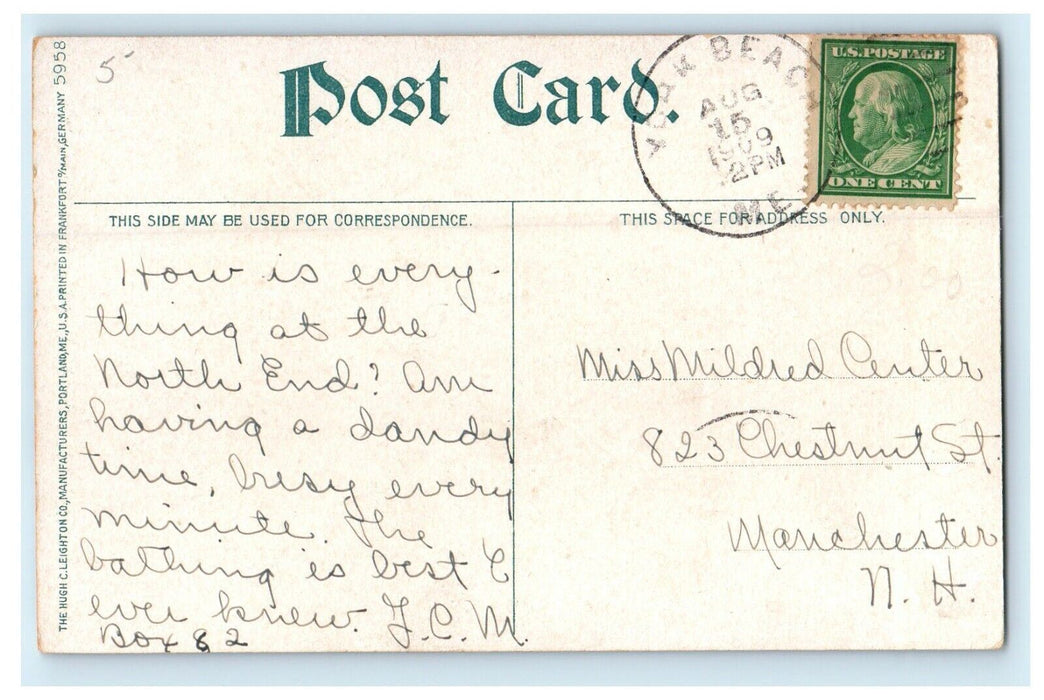 5
Post Card.
YORK BEACH
AUG
15
1909
2 PM
ME
U.S. POSTAGE
ONE CENT
THIS SIDE MAY BE USED FOR CORRESPONDENCE.
THIS SPACE FOR ADDRESS ONLY.
THE HUGH C. LEIGHTON CO., MANUFACTURERS, PORTLAND, ME., U.S.A. PRINTED IN FRANKFORT o/MAIN, GERMANY 5958
How is every-
thing at the
North End? Am
having a dandy
time, busy every
minute. The
bathing is best I
ever knew. J.C.M.
Box 82
Miss Mildred Center
823 Chestnut St.
Manchester
N. H.